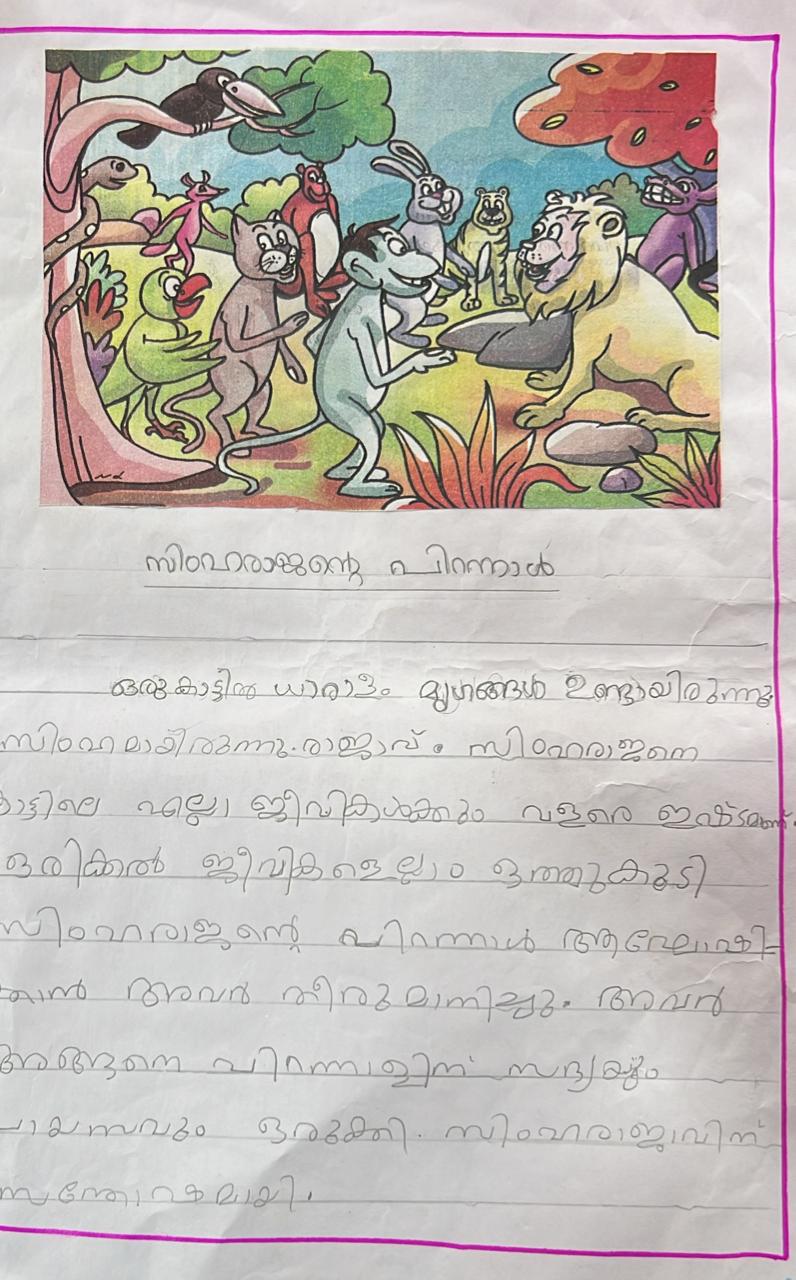 സിംഹരാജന്റെ പിറന്നാൾ
ഒരു കാട്ടിൽ ധാരാളം മൃഗങ്ങൾ ഉണ്ടായിരുന്നു
സിംഹമായിരുന്നു. രാജാവ്. സിംഹരാജനെ
കാട്ടിലെ എല്ലാ ജീവികൾക്കും വളരെ ഇഷ്ടമാണ്.
ഒരിക്കൽ ജീവികളെല്ലാം ഒത്തുകൂടി
സിംഹരാജന്റെ പിറന്നാൾ ആഘോഷി-
ക്കാൻ അവർ തീരുമാനിച്ചു. അവർ
അങ്ങനെ പിറന്നാളിന് സദ്യയും
പായസവും ഒരുക്കി. സിംഹരാജാവിന്
സന്തോഷമായി.